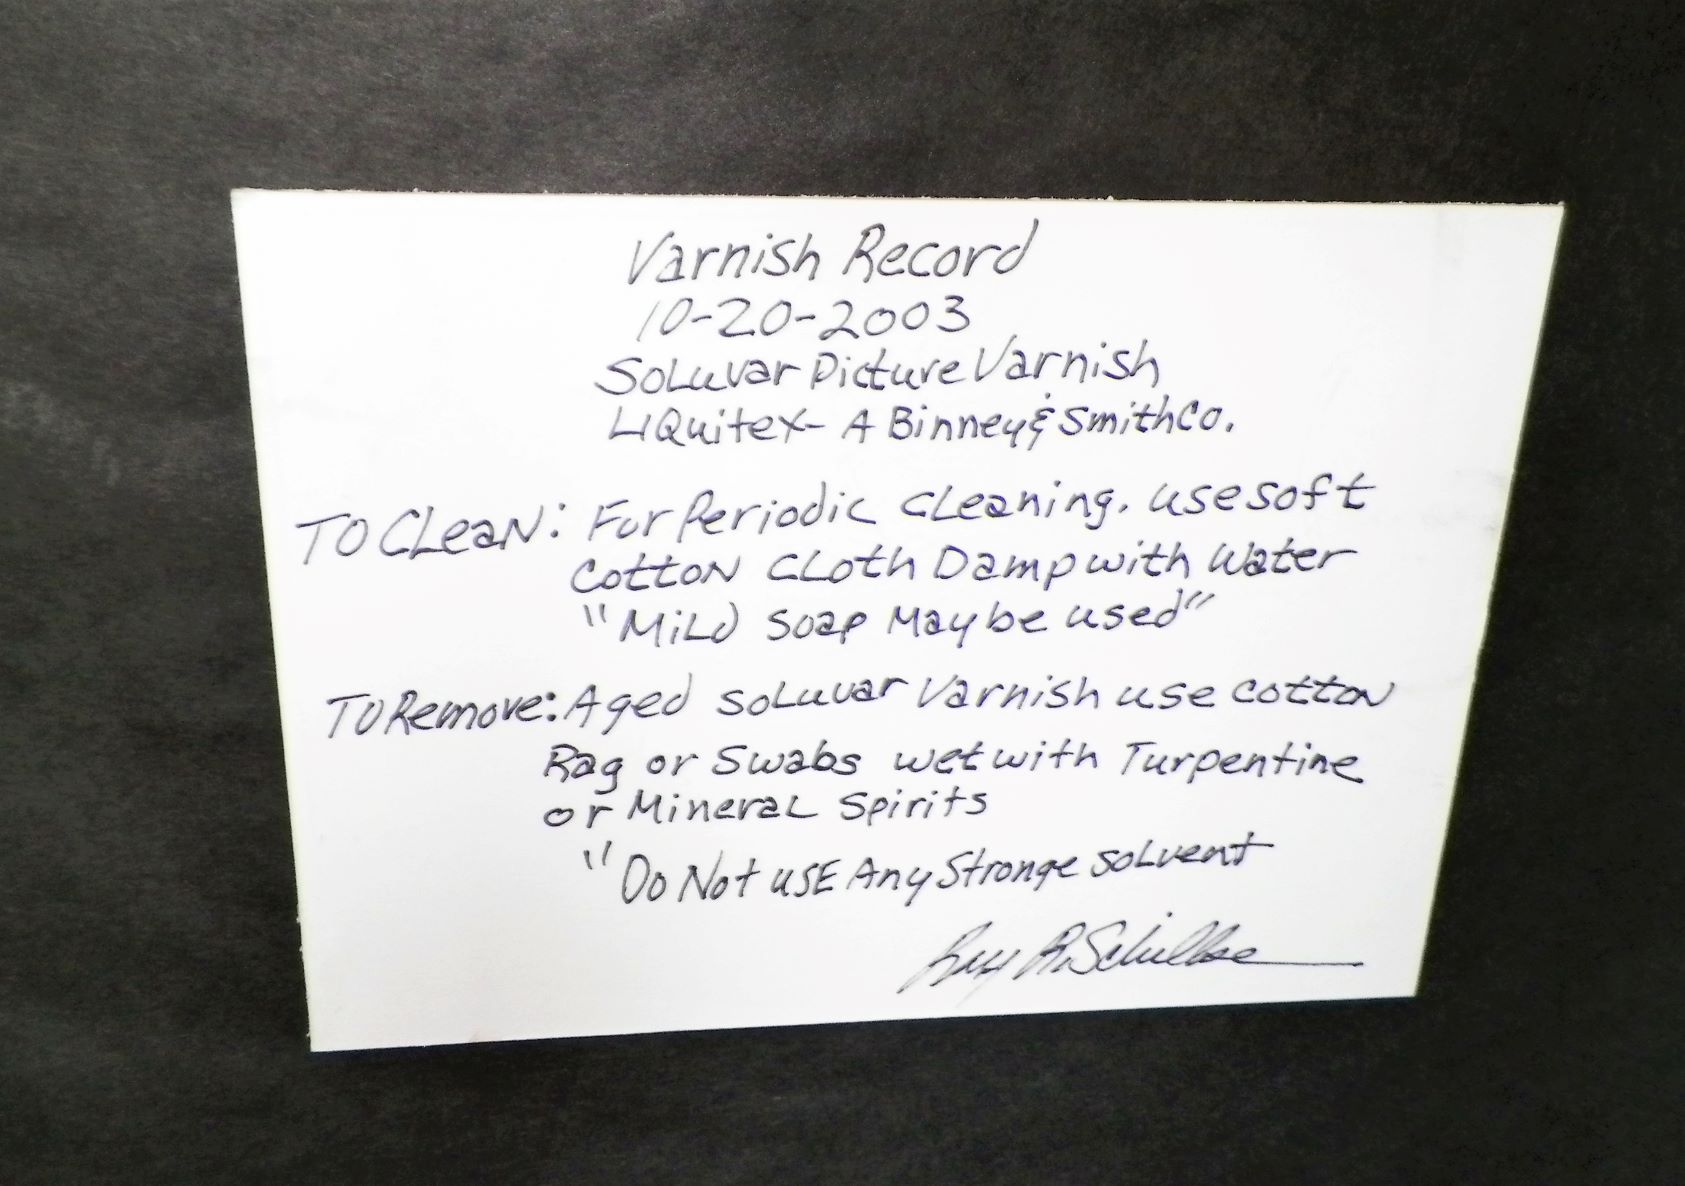 Varnish Record
10-20-2003
Soluvar Picture Varnish
Liquitex- A Binney & Smith Co.
To Clean: For Periodic Cleaning, use soft
cotton cloth Damp with Water
"Mild Soap May be used"
To Remove: Aged Soluvar Varnish use cotton
Rag or Swabs wet with Turpentine
or Mineral Spirits
"Do Not use Any Stronge Solvent
R. Schilke